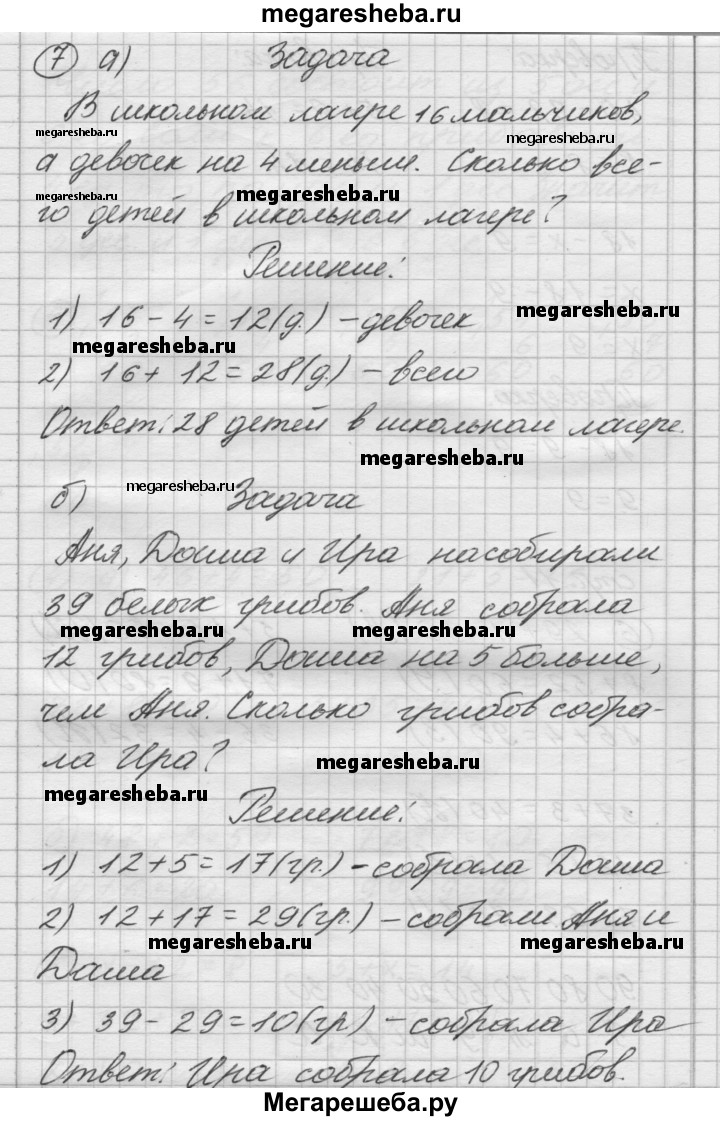 megaresheba.ru
7 а) Задача
В школьном лагере 16 мальчиков,
megaresheba.ru
megaresheba.ru
а девочек на 4 меньше. Сколько все-
megaresheba.ru
megaresheba.ru
го детей в школьном лагере?
Решение:
1) 16 - 4 = 12 (д.) - девочек
megaresheba.ru
megaresheba.ru
2) 16 + 12 = 28 (д.) - всего
Ответ: 28 детей в школьном лагере.
megaresheba.ru
б) Задача
megaresheba.ru
Аня, Даша и Ира насобирали
39 белых грибов. Аня собрала
megaresheba.ru
megaresheba.ru
12 грибов, Даша на 5 больше,
чем Аня. Сколько грибов собра-
ла Ира?
megaresheba.ru
megaresheba.ru
Решение:
1) 12 + 5 = 17 (гр.) - собрала Даша
2) 12 + 17 = 29 (гр.) - собрали Аня и
megaresheba.ru
megaresheba.ru
Даша
3) 39 - 29 = 10 (гр) - собрала Ира
Ответ: Ира собрала 10 грибов.
Мегарешеба.ру